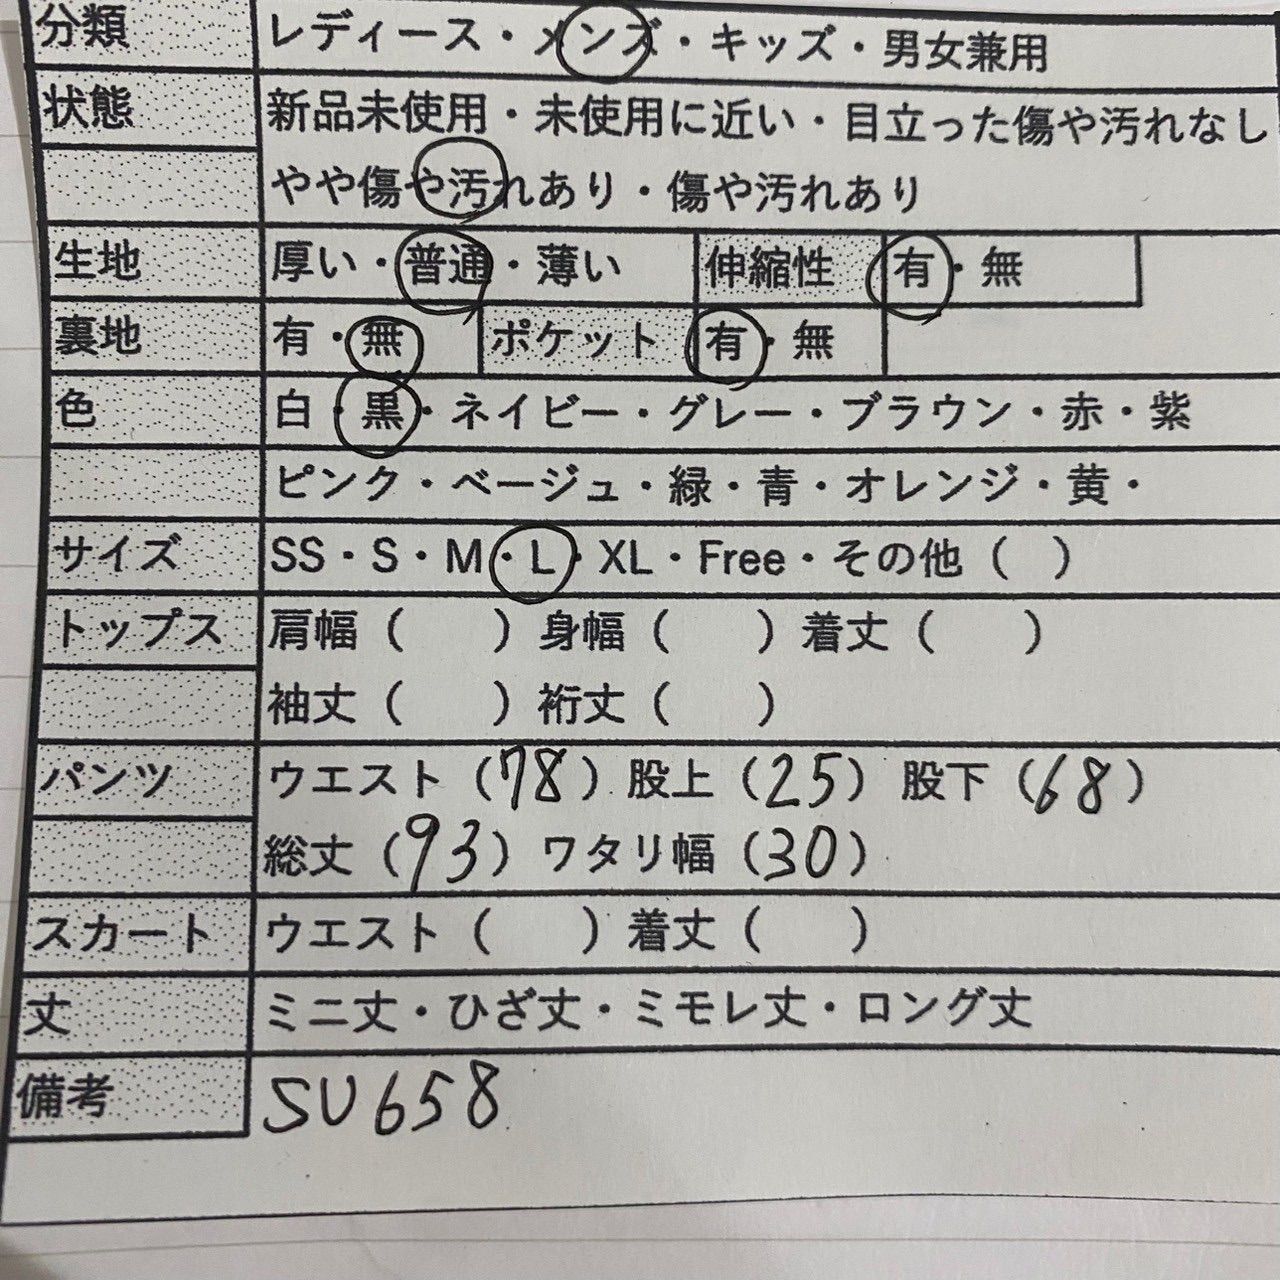 分類 レディース・メンズ・キッズ・男女兼用
状態 新品未使用・未使用に近い・目立った傷や汚れなし
やや傷や汚れあり・傷や汚れあり
生地 厚い・普通・薄い 伸縮性 有・無
裏地 有・無 ポケット 有・無
色 白・黒・ネイビー・グレー・ブラウン・赤・紫
ピンク・ベージュ・緑・青・オレンジ・黄・
サイズ SS・S・M・L・XL・Free・その他（ ）
トップス 肩幅（ ）身幅（ ）着丈（ ）
袖丈（ ）裄丈（ ）
パンツ ウエスト（78）股上（25）股下（68）
総丈（93）ワタリ幅（30）
スカート ウエスト（ ）着丈（ ）
丈 ミニ丈・ひざ丈・ミモレ丈・ロング丈
備考 SU658